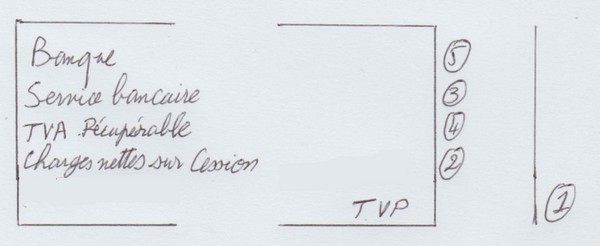 Banque 5
Service bancaire 3
TVA Récupérable 4
Charges nettes sur Cession 2
TVP 1